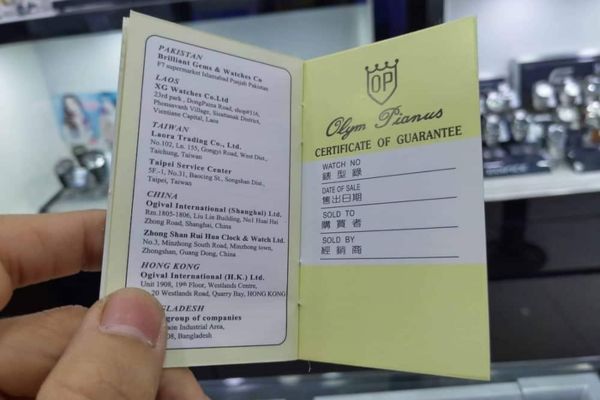 PAKISTAN
Brilliant Gems & Watches Co
F7 supermarket Islamabad Punjab Pakistan
LAOS
XG Watches Co.Ltd
23rd park, DongPaina Road, shop#116,
Phonsavanh Village, Sisattanak District,
Vientiane Capital, Laos
TAIWAN
Laora Trading Co., Ltd.
No.102, Ln. 155, Gongyi Road, West Dist.,
Taichung, Taiwan
Taipei Service Center
5F.-1, No.31, Baocing St., Songshan Dist.,
Taipei, Taiwan
CHINA
Ogival International (Shanghai) Ltd.
Rm.1805-1806, Liu Lin Building, No1 Huai Hai
Zhong Road, Shanghai, China
Zhong Shan Rui Hua Clock & Watch Ltd.
No.3, Minzhong South Road, Minzhong town,
Zhongshan, Guang Dong, China
HONG KONG
Ogival International (H.K.) Ltd.
Unit 1908, 19th Floor, Westlands Centre,
20 Westlands Road, Quarry Bay, HONG KONG
GLADESH
group of companies
Industrial Area,
08, Bangladesh
OP
Olym Pianus
CERTIFICATE OF GUARANTEE
WATCH NO
錶型錄
DATE OF SALE
售出日期
SOLD TO
購買者
SOLD BY
經銷商